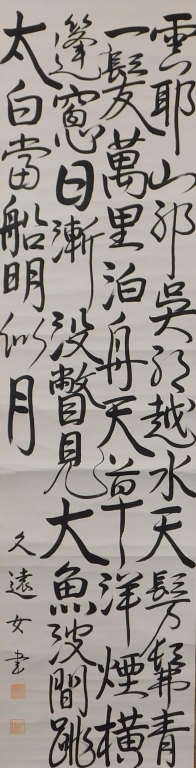 雲耶山耶呉耶越水天髣髴青
一髮萬里泊舟天草洋煙横
篷窓日漸没瞥見大魚波間跳
太白當船明似月
久遠女書